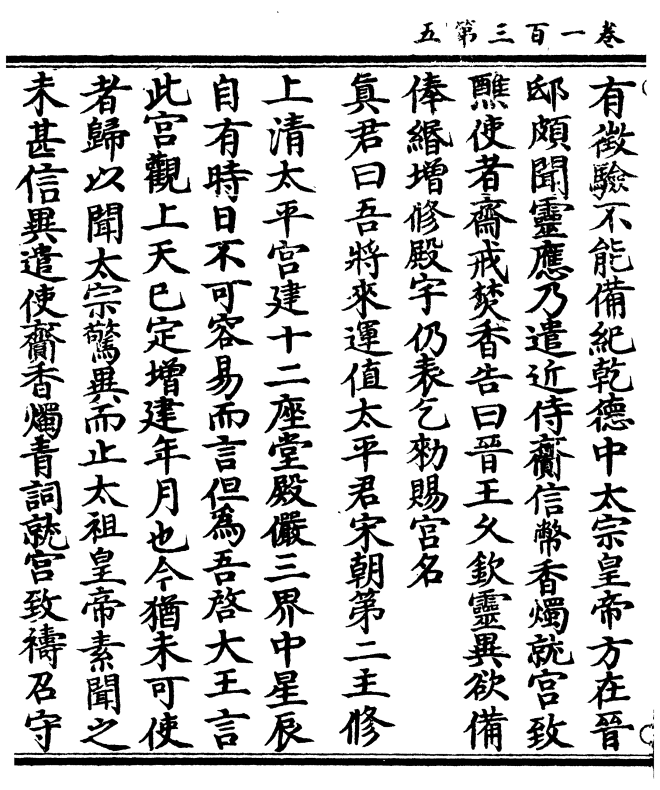 卷一百三第五
有徵驗不能備紀乾德中太宗皇帝方在晉
邸頗聞靈應乃遣近侍齎信幣香燭就宮致
醮使者齋戒焚香告曰晉王久欽靈異欲備
俸緡增修殿宇仍表乞勑賜宮名
眞君曰吾將來運值太平君宋朝第二主修
上清太平宮建十二座堂殿儼三界中星辰
自有時日不可容易而言但爲吾啓大王言
此宮觀上天已定增建年月也今猶未可使
者歸以聞太宗驚異而止太祖皇帝素聞之
未甚信異遣使齎香燭青詞就宮致禱召守